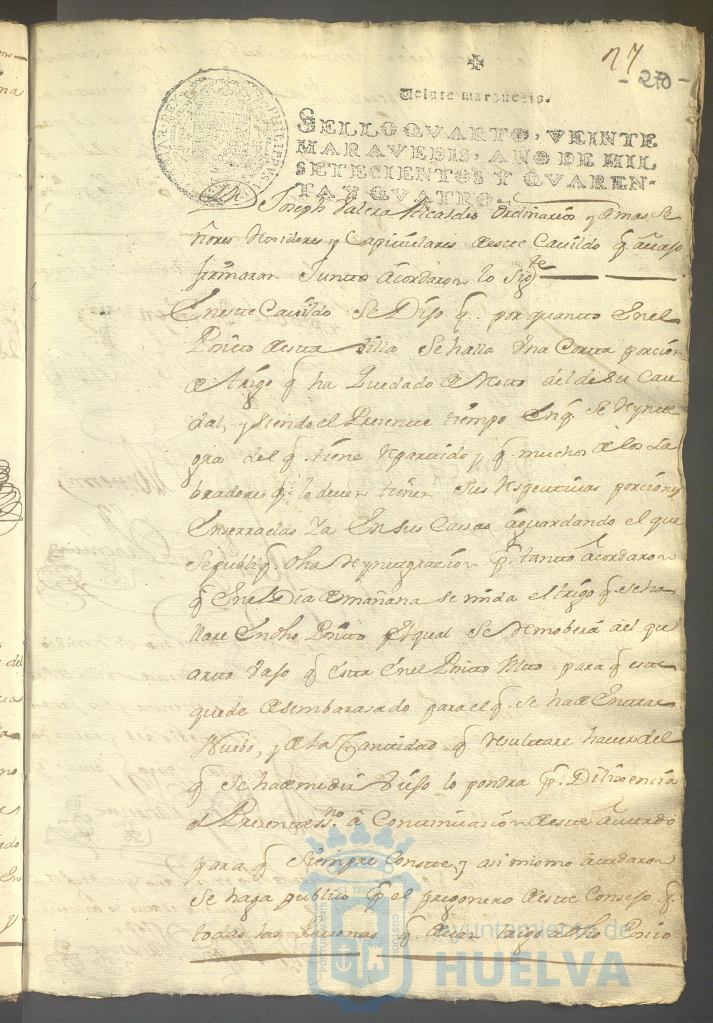 27
- 270 -
Veinte maravedis.
SELLO QVARTO, VEINTE
MARAVEDIS, AÑO DE MIL
SETECIENTOS Y QVAREN-
TA Y QVATRO.
Joseph Valera Alcaldes Ordinarios y demas Se
ñores Rexidores y Capitulares deste Cavildo q. avajo
firmaran Juntos Acordaron lo Sigte
Eneste Cavildo Se Dijo q. por quanto Enel
Posito desta Villa Se halla Vna Corta porcion
de trigo q ha quedado de Resto del de su Cau
dal, y siendo el Presente tiempo En q. Se Reynte
gra del q. tiene Repartido, y q. muchos de los La
bradores q. lo deven tienen Sus Respectivas porciones
Enserradas Ya En sus Cassas aguardando el que
Se publiq. dha Reyntegrazion pr. tanto Acordaron
q. Enel Dia de mañana se mida el trigo q. se ha
llare En dho Posito el qual Se Remobera del qu
arto Vajo q Esta Enel Posito Alto para q. este
quede desembarasado para el q. se ha de Entrar
Nuebo, y de la Cantidad q. resultare haver del
q. Se ha de medir Viejo lo pondra pr. Dilixencia
el Presente Ssno. a Continuazion deste Acuerdo
para q Siempre Conste, y asi mismo Acordaron
Se haga publico pr el pregonero deste Consejo q.
todas las Personas q. deven trigo a dho Posito
ayuntamiento de
HUELVA